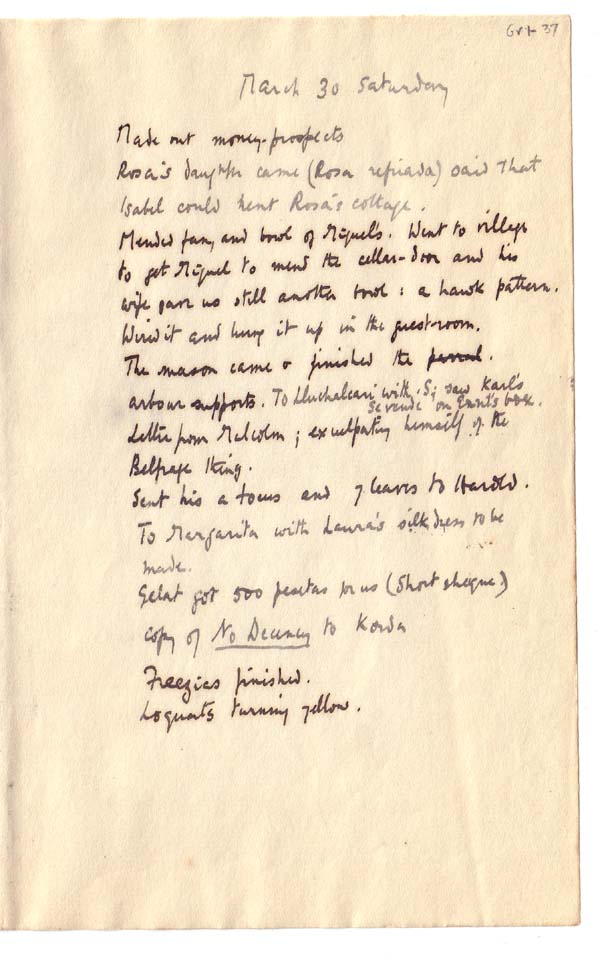 March 30 Saturday
Made out money-prospects
Rosa's daughter came (Rosa refriada) said that
Isabel could rent Rosa's cottage.
Mended fan, and bowl of Miguel's. Went to village
to get Miguel to mend the cellar-door and his
wife gave us still another bowl: a hawk pattern.
Wired it and hung it up in the guest-room.
The mason came & finished the
arbour supports. To Lluchalcari with S; saw Karl's
on Ernst's book.
Letter from Malcolm; exculpating himself of the
Belfrage thing.
Sent his a focus and 7 leaves to Harold.
To Margarita with Laura's silk dress to be
made.
Gelat got 500 pesetas for us (Short cheque.)
copy of No Decency to Korda
Freezias finished.
Loquats turning yellow.